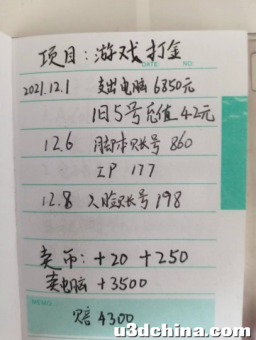 项目：游戏打金
DATE NO.
2021.12.1 支出电脑 6850元
旧5号充值 42元
12.6 脚本账号 860
IP 177
12.8 人脸账号 198
卖币：+20 +250
卖电脑 +3500
MEMO
赔 4300
u3dchina.com